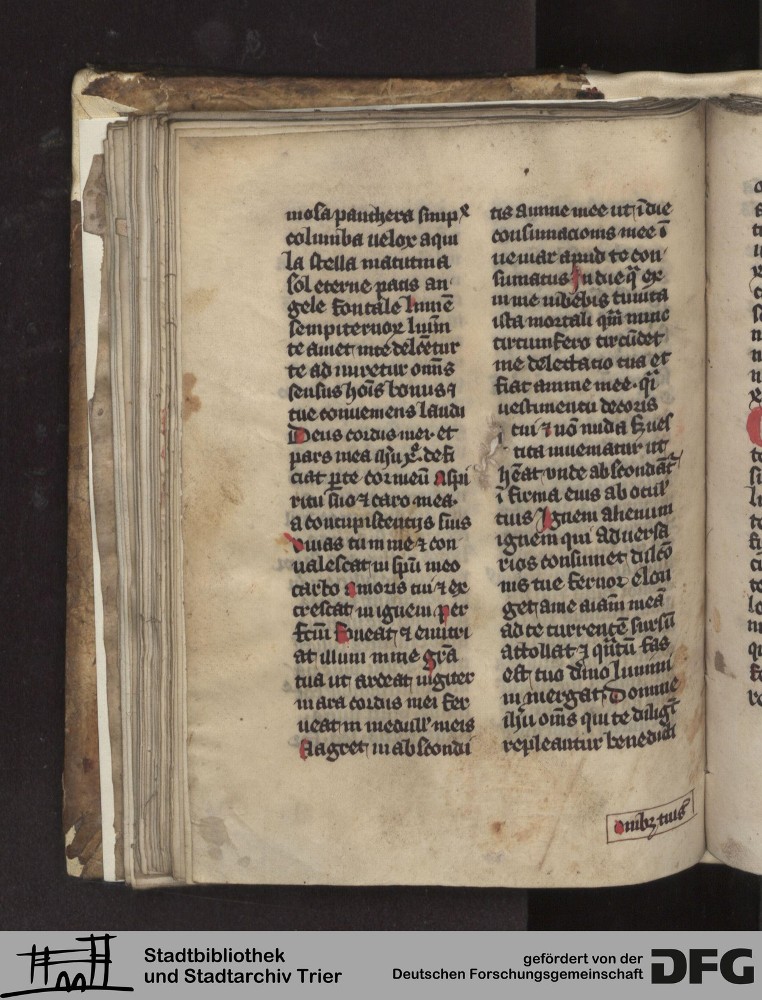 mosa panthera simpx
columba uelox aqui
la stella matutina
sol eterne pacis an
gele fontale lumē
sempiternorum lumī
te amet inte delcētur
te ad miretur omīs
sensus hoīs bonus ⁊
tue conuemens laudi
Deus cordis mei et
pars mea ihu xpe defi
ciat perte cor meū aspi
ritu suo ⁊ caro mea
a concupistentijs suis
viuas tu in me ⁊ con
ualescat in spū meo
carbo amoris tui ⁊ ex
crescat in ignem per
fctm foueat ⁊ enutri
at illum in me gra
tua ut ardeat iugiter
in ara cordis mei fer
ueat in medull meis
flagret in abscondi
tis anime mee ut ī die
consumacionis mee ī
ueniar apud te con
sumatus In die qua ex
in me iubebis tunica
ista mortali quam nunc
circumfero circūdet
me delectatio tua et
fiat anime mee qi
uestimentu decoris
tui ⁊ nō nuda sz ues
tita inueniatur ut
heat vnde abscondat
īfirma eius ab ocul
tuis Ignem alienum
ignem qui aduersa
rios consumet disco
nis tue feruor elon
get ame aiam meā
ad te currentē sursū
attollat ⁊ qntū fas
est tuo dino lumini
in mergat Domine
ihu omīs qui te diligt
repleantur benedicti
onibz tuis
Stadtbibliothek
und Stadtarchiv Trier
gefördert von der
Deutschen Forschungsgemeinschaft
DFG